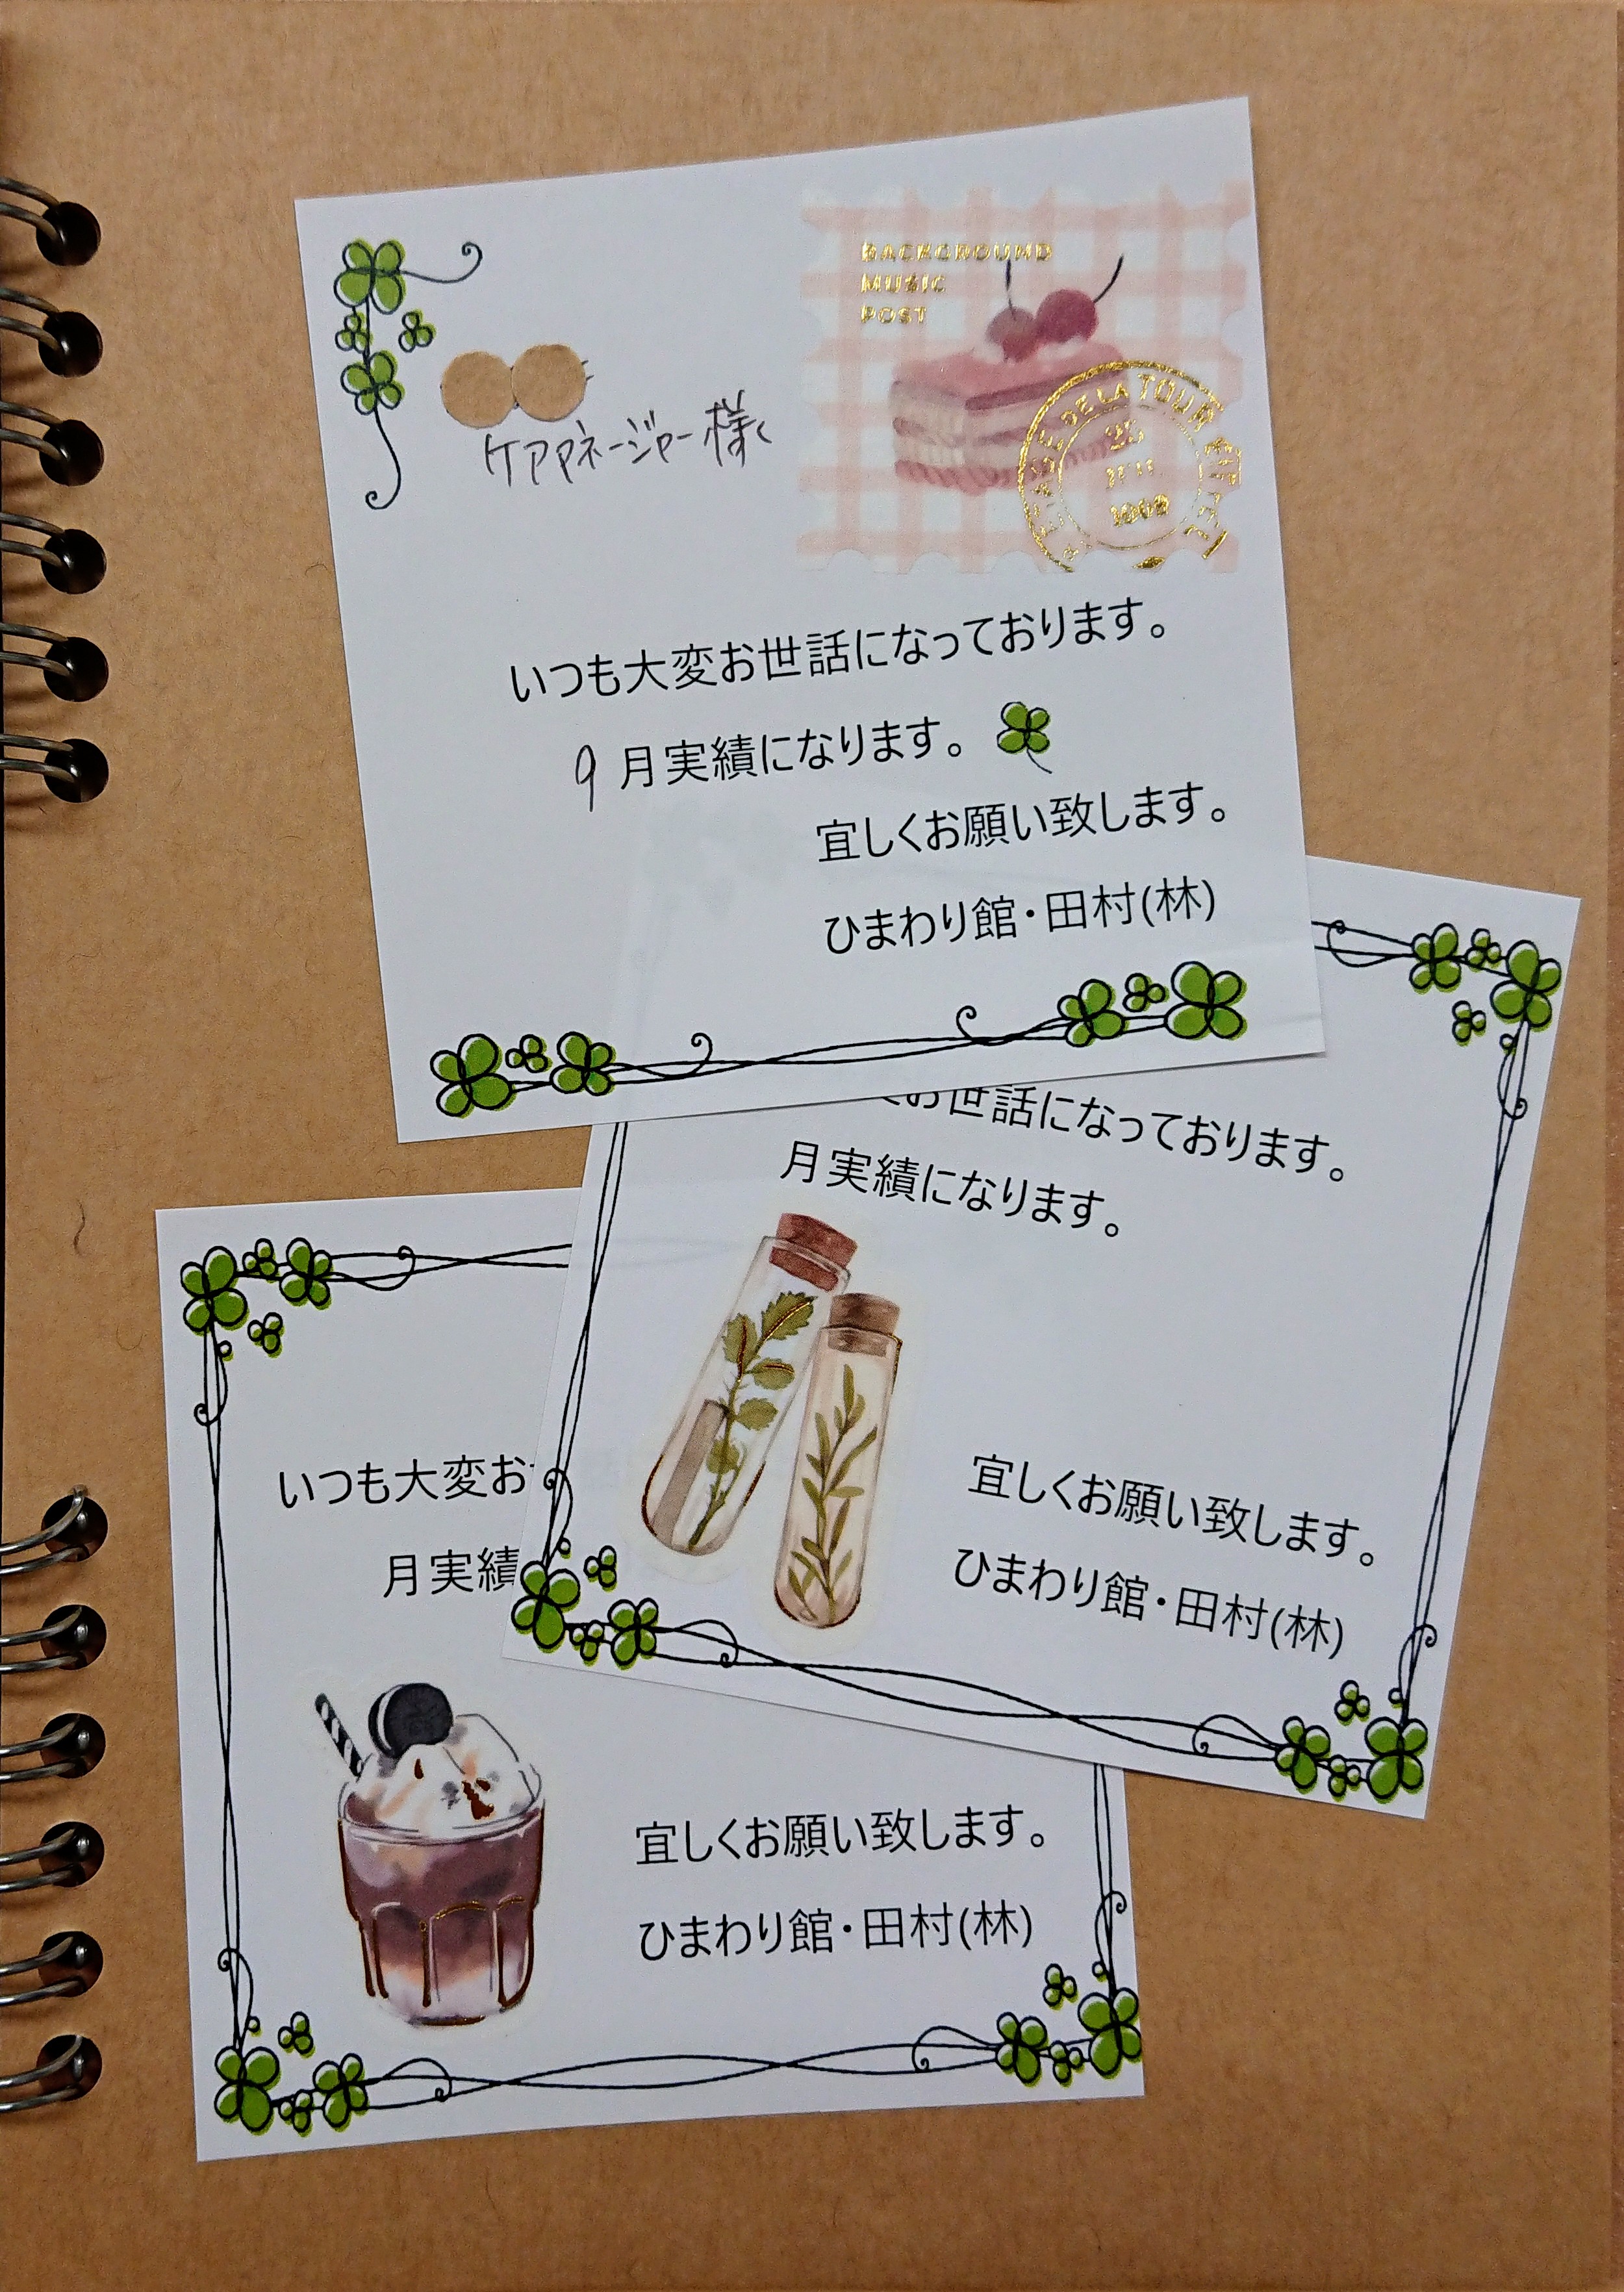 BACKGROUND
MUSIC
POST
DE LA TOUR
ケアマネージャー様
いつも大変お世話になっております。
9月実績になります。
宜しくお願い致します。
ひまわり館・田村(林)
お世話になっております。
月実績になります。
宜しくお願い致します。
ひまわり館・田村(林)
いつも大変お
月実績
宜しくお願い致します。
ひまわり館・田村(林)